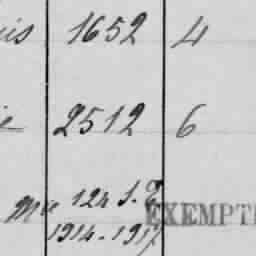 1652 4
2512 6
124 S. E
EXEMPT
1914-1917